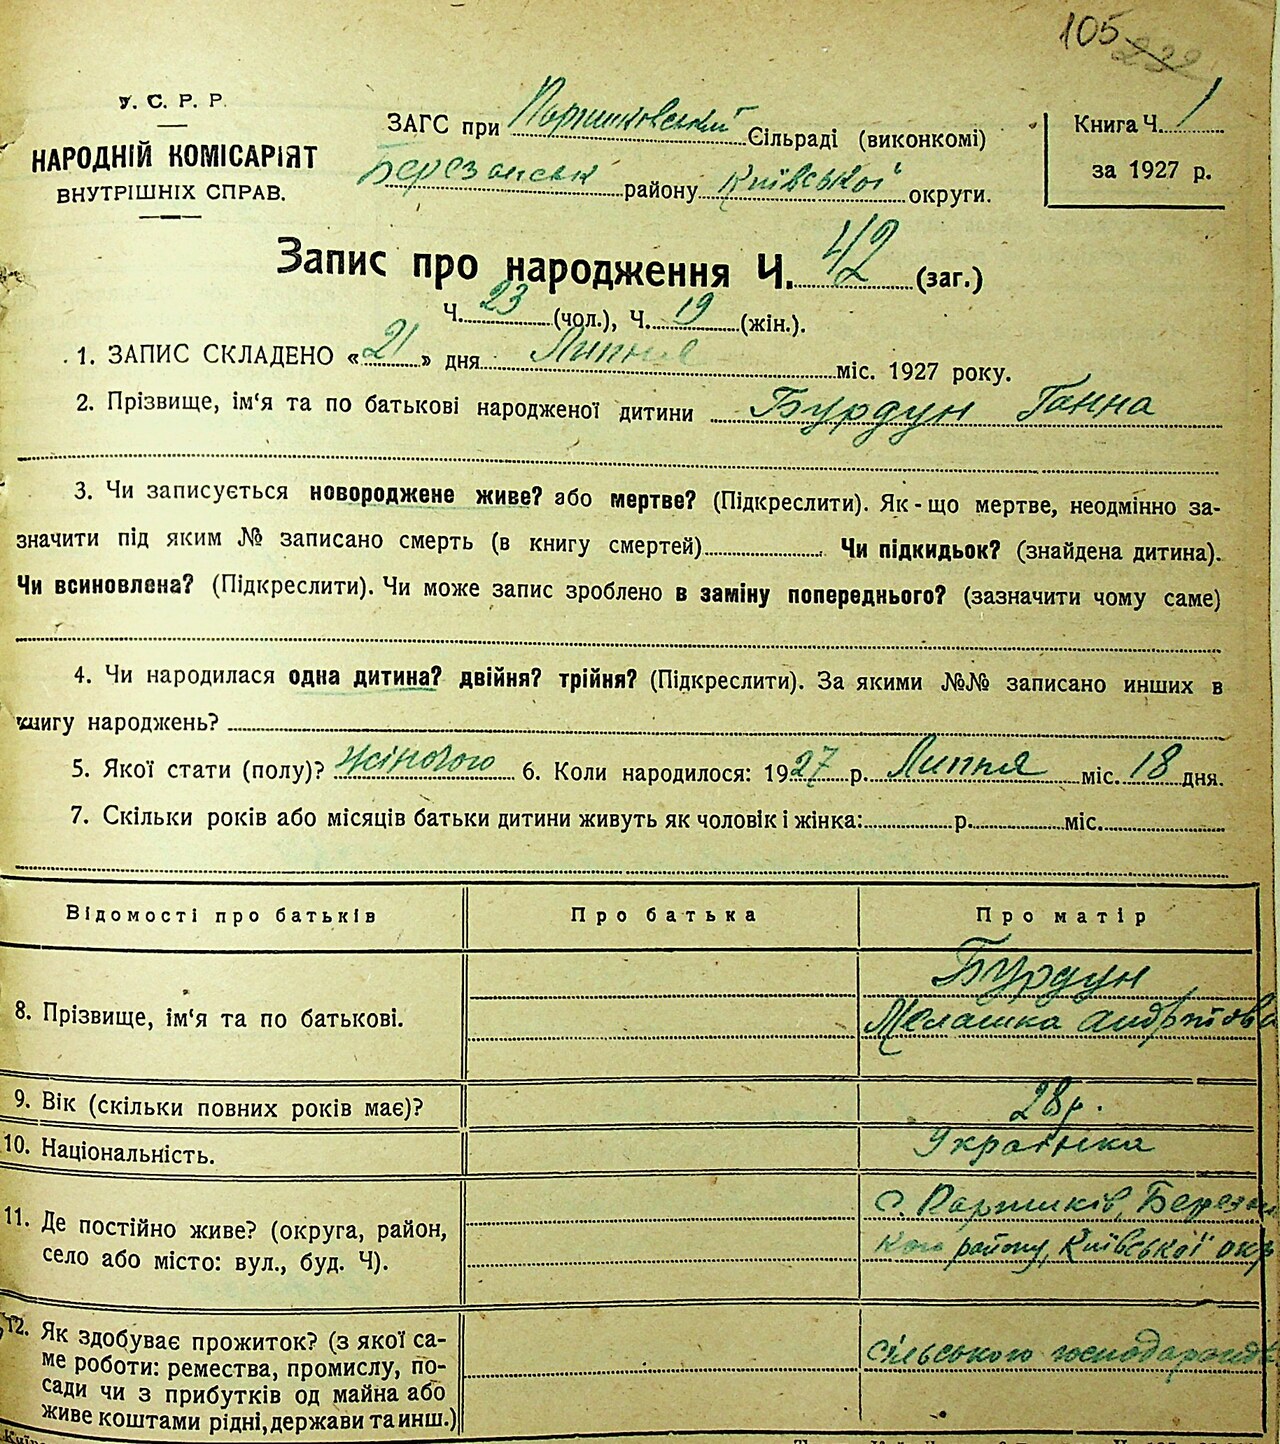 105 232
У. С. Р. Р.
НАРОДНІЙ КОМІСАРІЯТ
ВНУТРІШНІХ СПРАВ.
ЗАГС при Паришковський Сільраді (виконкомі)
Березанськ району Київської округи.
Книга Ч. 1
за 1927 р.
Запис про народження Ч. 42 (заг.)
Ч. 23 (чол.), Ч. 19 (жін.).
1. ЗАПИС СКЛАДЕНО «21» дня Липня міс. 1927 року.
2. Прізвище, ім‘я та по батькові народженої дитини Бурдун Ганна
3. Чи записується новороджене живе? або мертве? (Підкреслити). Як-що мертве, неодмінно за-
значити під яким № записано смерть (в книгу смертей) Чи підкидьок? (знайдена дитина).
Чи всиновлена? (Підкреслити). Чи може запис зроблено в заміну попереднього? (зазначити чому саме)
4. Чи народилася одна дитина? двійня? трійня? (Підкреслити). За якими №№ записано инших в
книгу народжень?
5. Якої стати (полу)? Жіночого 6. Коли народилося: 1927 р. Липня міс. 18 дня.
7. Скільки років або місяців батьки дитини живуть як чоловік і жінка: р. міс.
Відомості про батьків Про батька Про матір
8. Прізвище, ім‘я та по батькові.
Бурдун
Мелашка Андріївна
9. Вік (скільки повних років має)? 28 р.
10. Національність. Українка
11. Де постійно живе? (округа, район,
село або місто: вул., буд. Ч).
с. Паришків, Березан
кого району, Київської окр
12. Як здобуває прожиток? (з якої са-
ме роботи: ремества, промислу, по-
сади чи з прибутків од майна або
живе коштами рідні, держави та инш.)
сільського